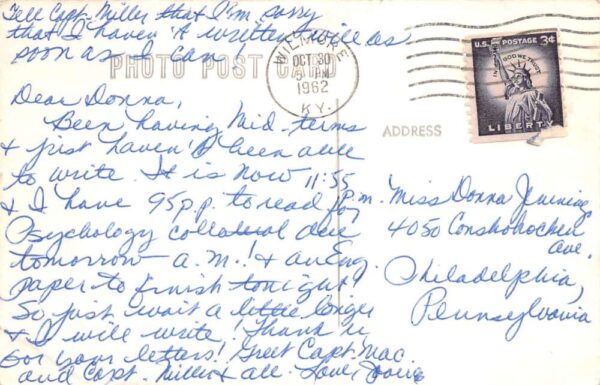 Tell Capt. Miller that I'm sorry
that I haven't written will as
soon as I can!
PHOTO POST CARD
WILMORE
OCT 30
5 PM
1962
KY.
U.S. POSTAGE 3¢
IN GOD WE TRUST
LIBERTY
ADDRESS
Dear Donna,
Been having Mid-terms
& just haven't been able
to write. It is now 11:55 p.m.
& I have 95 p.p. to read for
Psychology collateral due
tomorrow a.m.! & an Eng.
paper to finish tonight!
So just wait a little longer
& I will write! Thank u
for your letters! Greet Capt. Mac.
and Capt. Miller & all. Love,
Miss Donna
4050 Conshohocken
Ave.
Philadelphia,
Pennsylvania